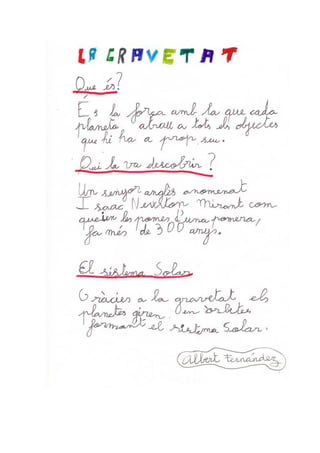 LA GRAVETAT
Que és?
És la força amb la que cada
planeta atrau a tots els objectes
que hi ha a prop seu.
Qui la va descobrir?
Un senyor anglès anomenat
Isaac Newton mirant com
queien les pomes d'una pomera,
fa més de 300 anys.
El sistema Solar
Gràcies a la gravetat, els
planetes giren en orbites
formant el sistema Solar.
Albert Fernández